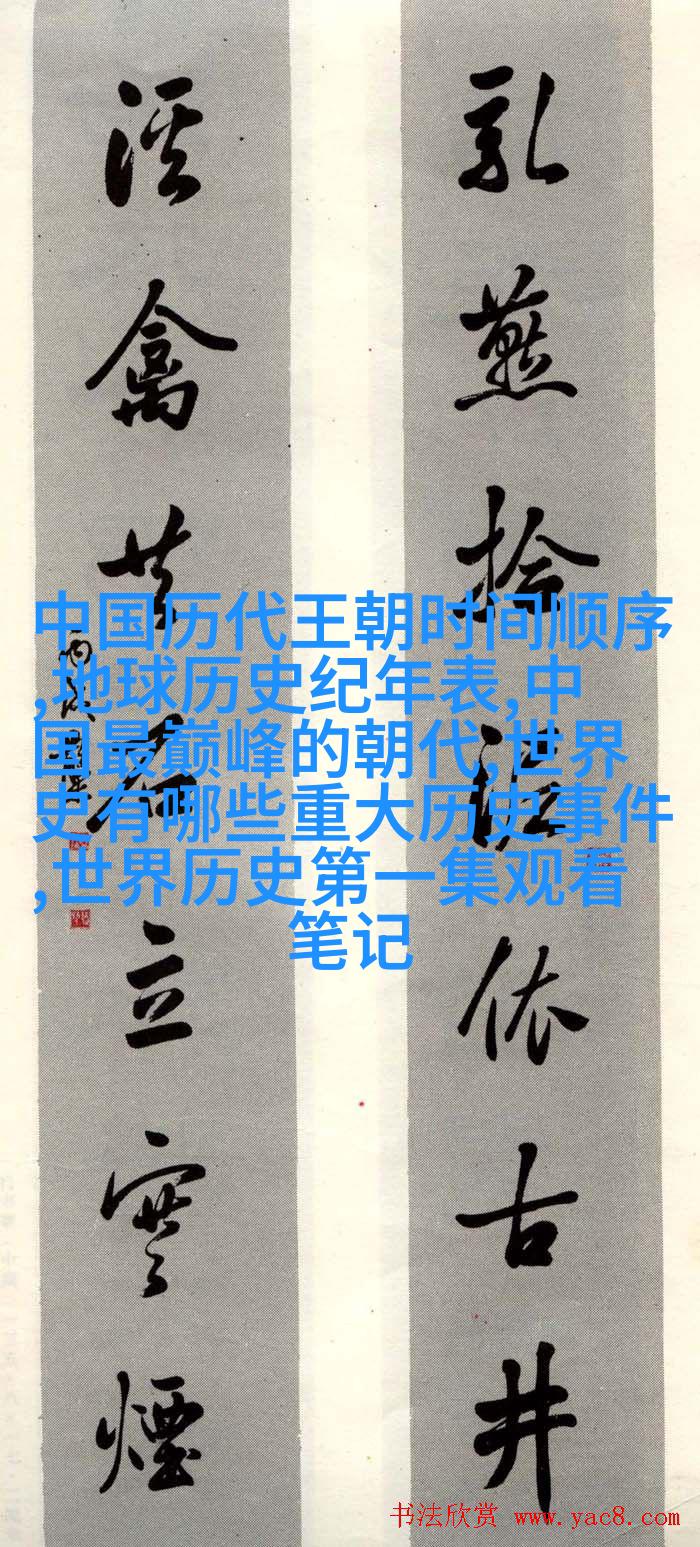 乳燕拾泥依古井
溪禽共立寒煙
中国历代王朝时间顺序
,地球历史纪年表,中
国最巅峰的朝代,世界
史有哪些重大历史事件
,世界历史第一集观看
笔记
书法欣赏 www.yac8.com